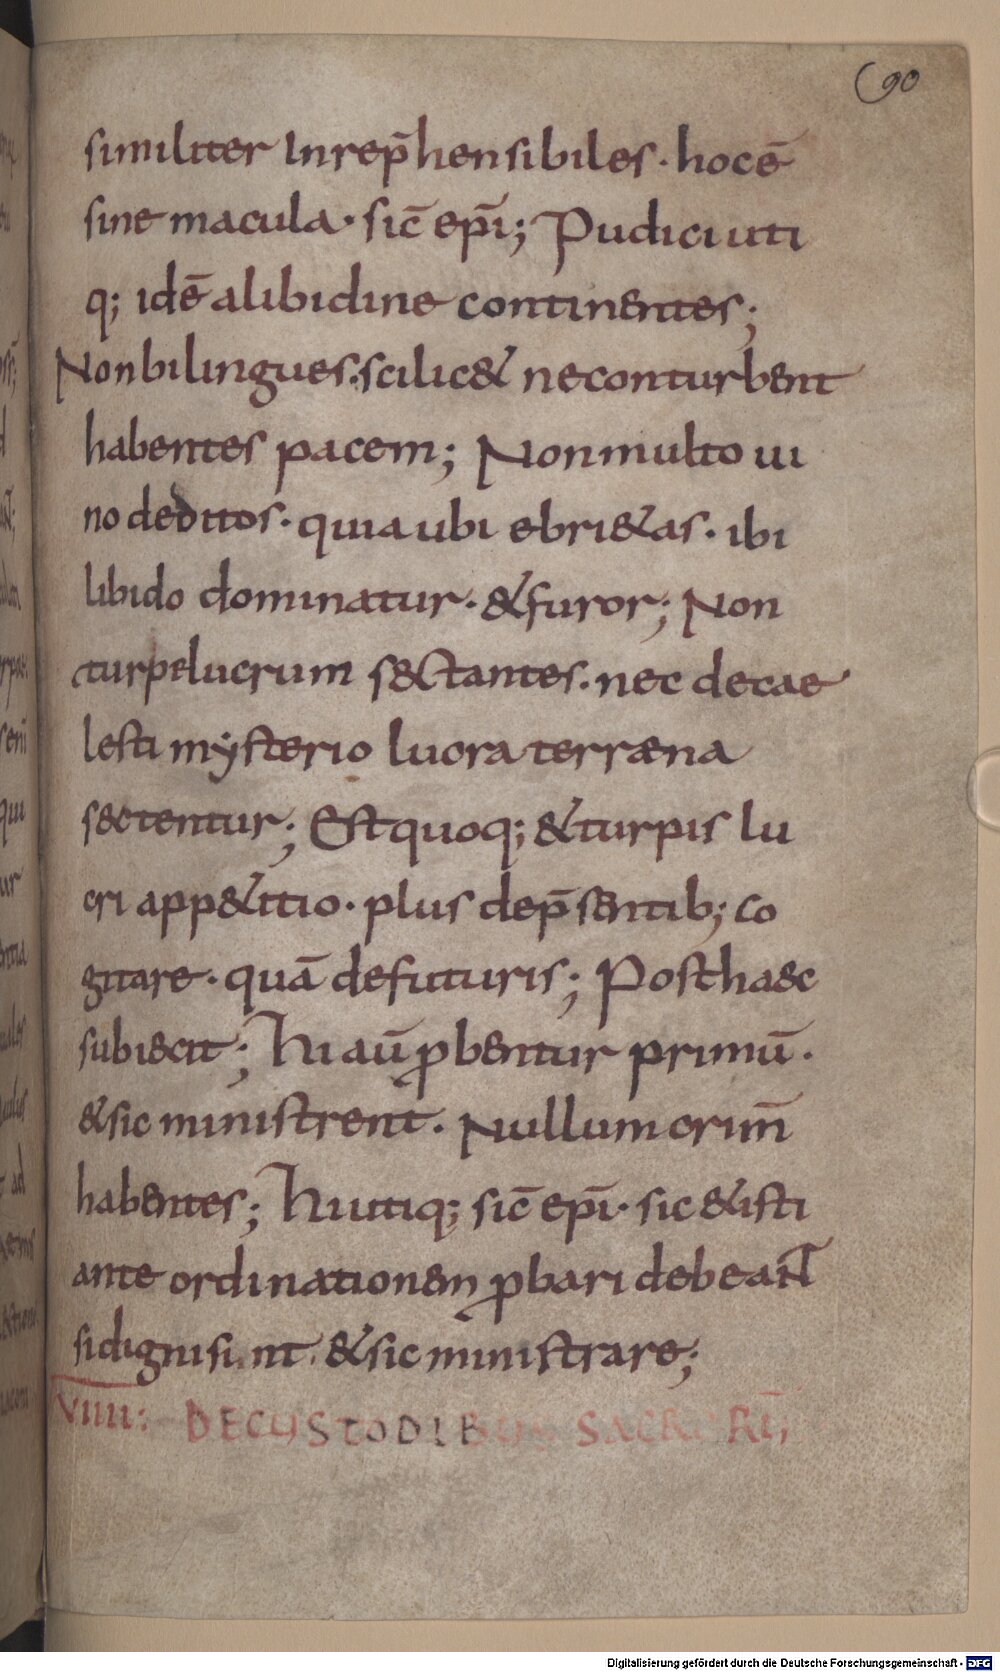 90
similiter inrep̄hensibiles · hocē
sine macula · sic̄ ep̄i; Pudici uti
q; idē alibidine continentes;
Non bilingues. scilic& neconturbent
habentes pacem; Non multo ui
no deditos · quia ubi ebri&as · ibi
libido dominatur · &furor; Non
turpelucrum sectantes. nec decae
lesti mẏsterio lucra terræna
sectentur; Est quoq; &turpis lu
cri app&itio · plus dep̄sentib; co
gitare · quā defuturis; Posthaec
subiecit; Hi aū ꝓbentur primū ·
&sic ministrent. Nullum crim̄
habentes; Hi utiq; sic̄ ep̄i · sic &isti
ante ordinationem ꝓbari debeant
sidigni sunt. &sic ministrare;
VIIII: DECUSTODIBUS SACRORŪ;
Digitalisierung gefördert durch die Deutsche Forschungsgemeinschaft - DFG